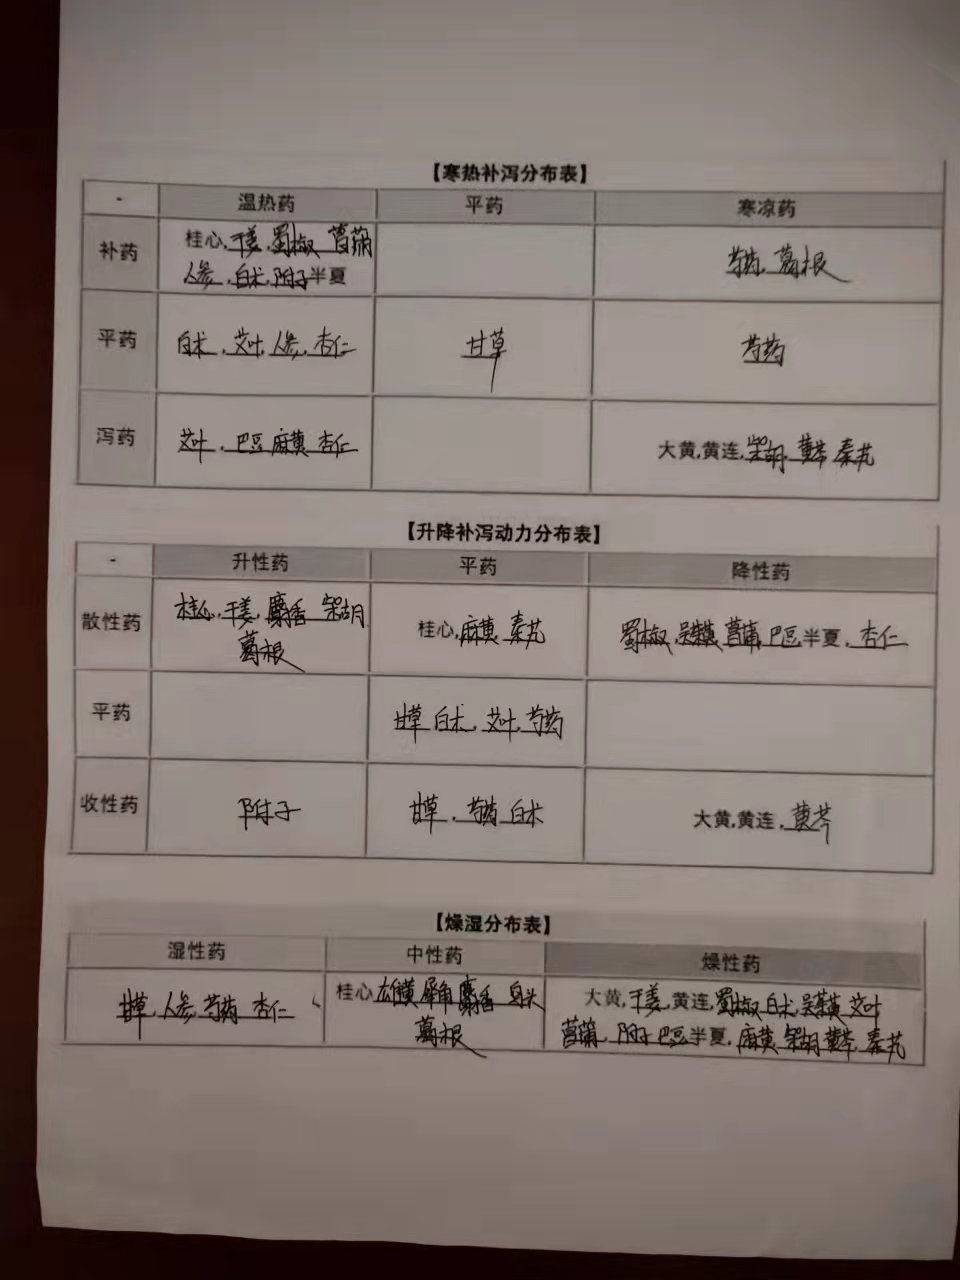 【寒热补泻分布表】
- 温热药 平药 寒凉药
补药 桂心,干姜,蜀椒 菖蒲 芍药,葛根
人参,白术,附子半夏
平药 白术,艾叶,人参,杏仁 甘草 芍药
泻药 艾叶,巴豆 麻黄 杏仁 大黄,黄连,柴胡,黄芩 秦艽
【升降补泻动力分布表】
- 升性药 平药 降性药
散性药 桂心,干姜,麝香 柴胡 桂心,麻黄 秦艽 蜀椒,吴萸 菖蒲,巴豆,半夏,杏仁
葛根
平药 甘草 白术,艾叶,芍药
收性药 附子 甘草,芍药 白术 大黄,黄连,黄芩
【燥湿分布表】
湿性药 中性药 燥性药
甘草,人参,芍药 杏仁 桂心,雄黄 犀角 麝香 乌头 大黄,干姜,黄连,蜀椒 白术,吴萸 艾叶
葛根 菖蒲,附子 巴豆半夏,麻黄 柴胡 黄芩 秦艽